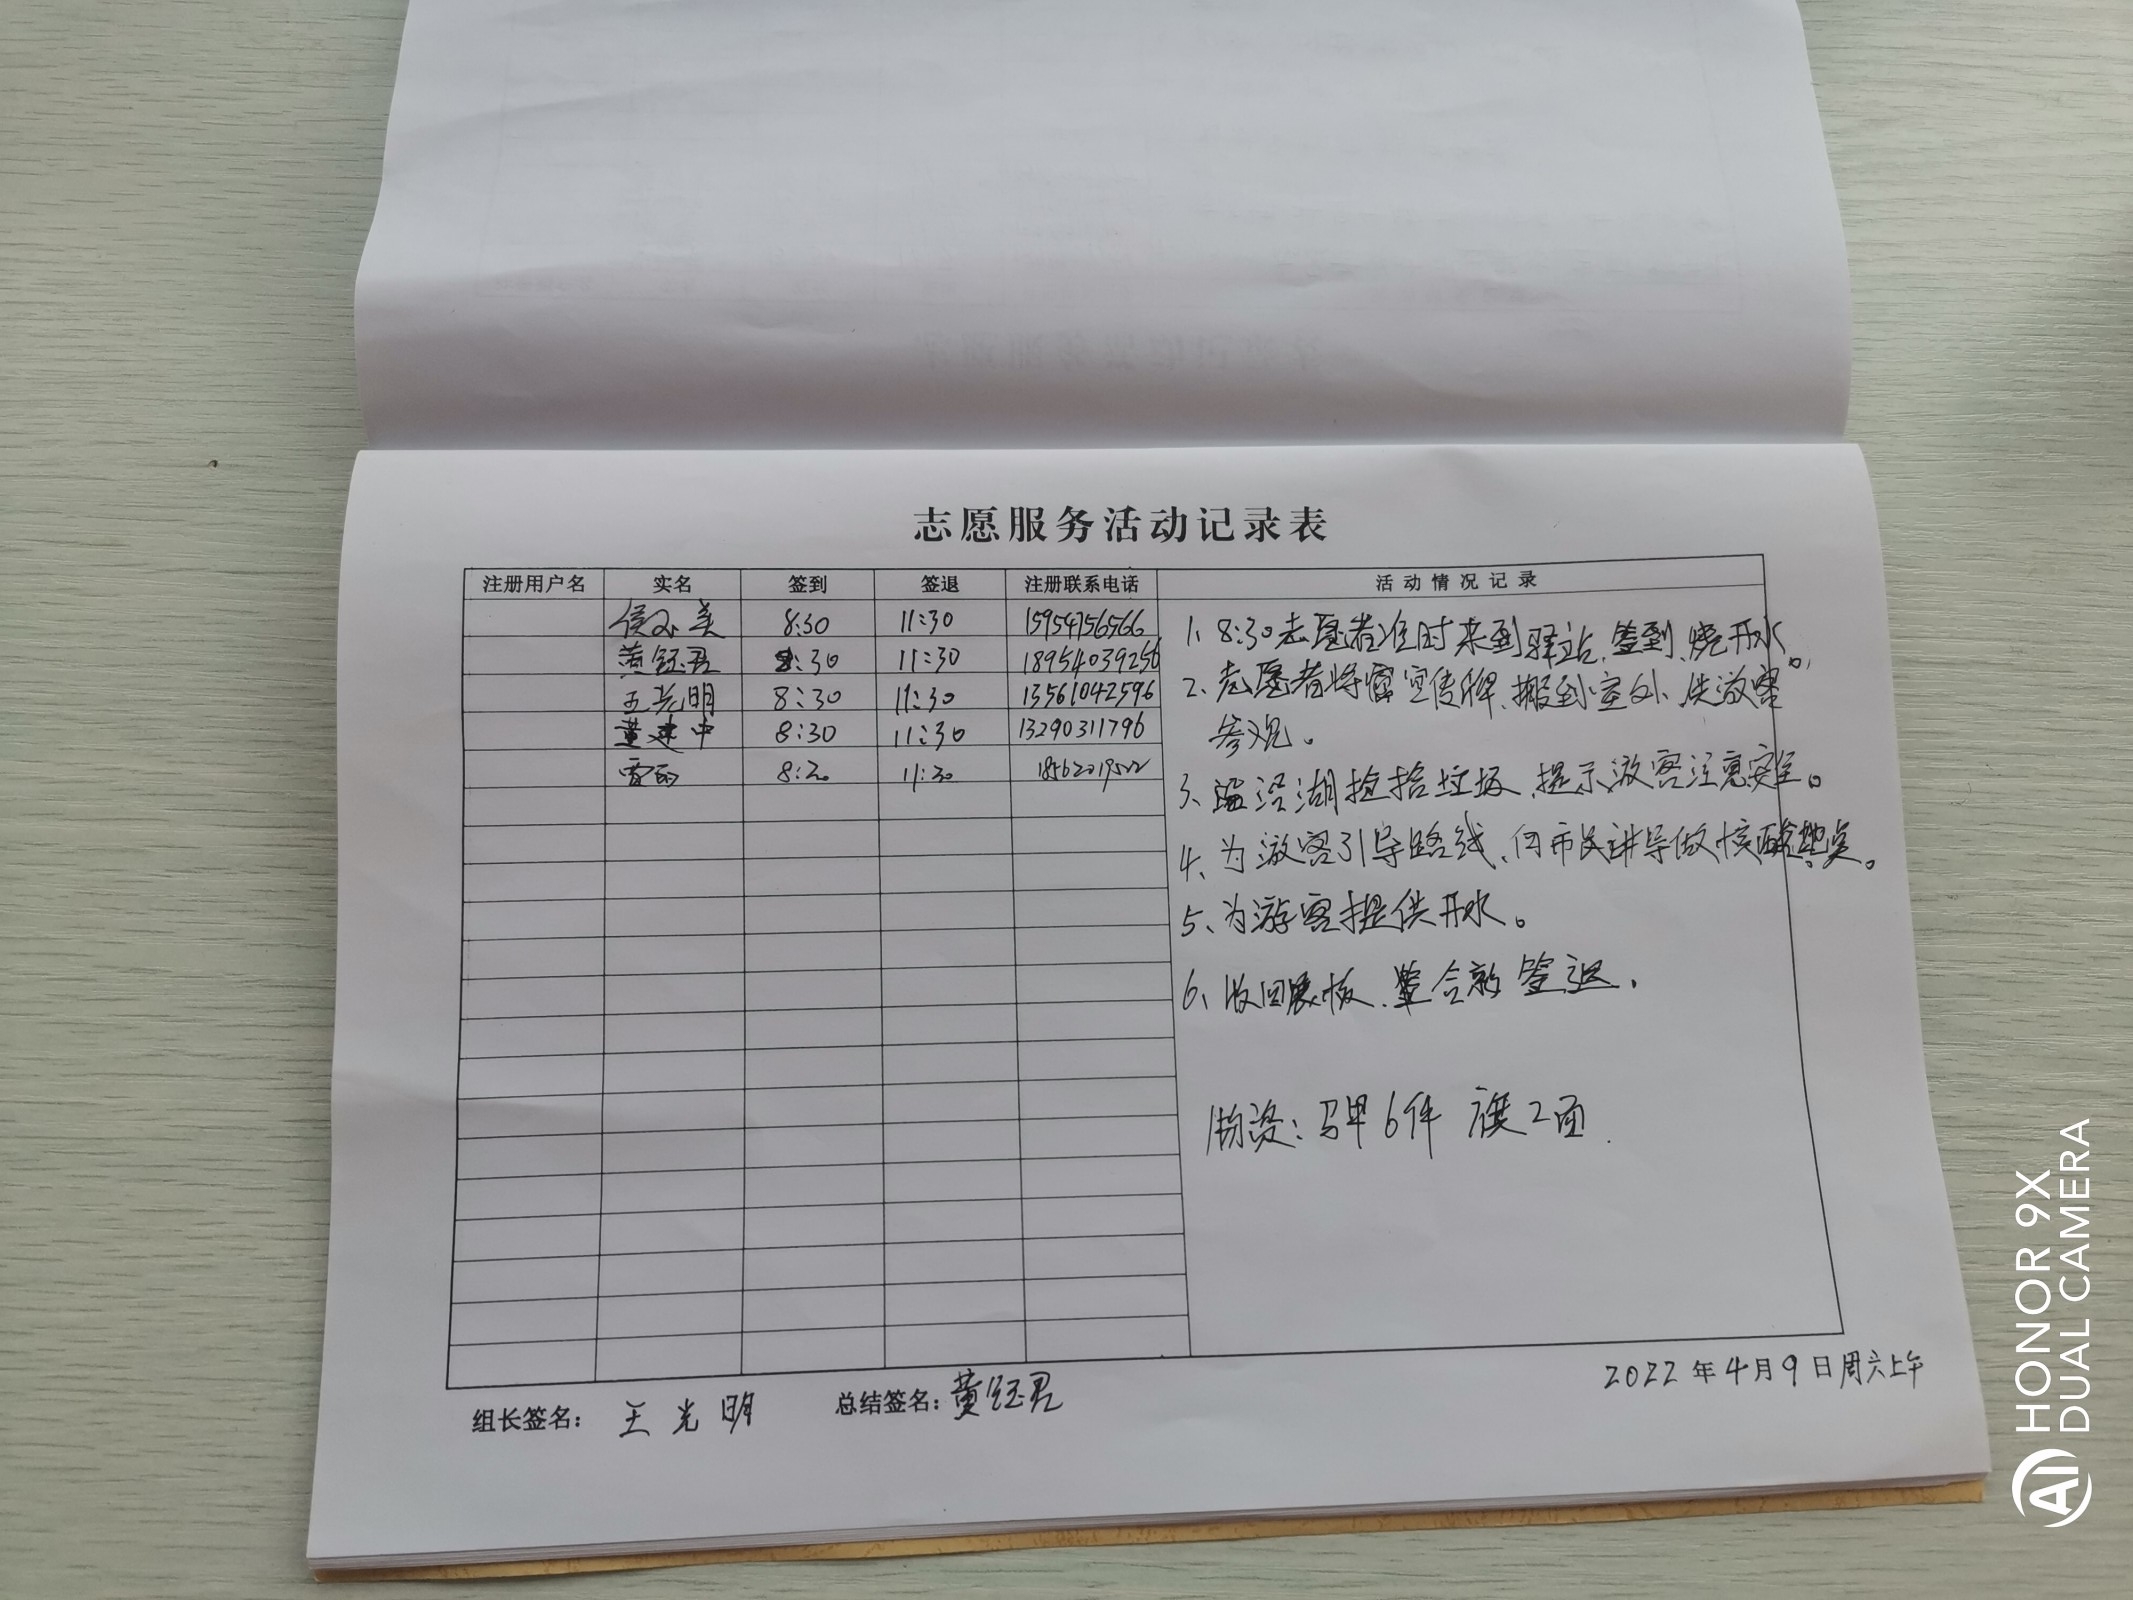 志愿服务活动记录表
注册用户名 实名 签到 签退 注册联系电话 活动情况记录
8:30 11:30 15954756566
黄钰君 8:30 11:30 18954039256
王光明 8:30 11:30 13561042596
黄建中 8:30 11:30 13290311796
雷丽 8:30 11:30
1、8:30志愿者准时来到驿站、签到、烧开水。
2、志愿者将雷宣传牌、搬到室外、供游客
参观。
3、沿湖捡拾垃圾、提示游客注意安全。
4、为游客引导路线、向市民讲导做核酸地点。
5、为游客提供开水。
6、收回展板、整合部签退.
物资：马甲6件 旗2面.
2022年4月9日周六上午
组长签名：王光明 总结签名：黄钰君
HONOR 9X
DUAL CAMERA
AI